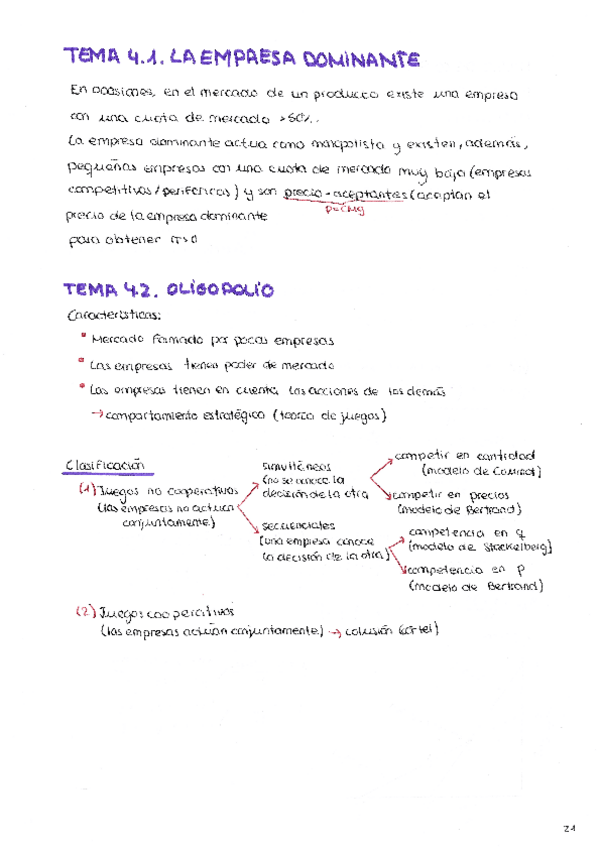 TEMA 4.1. LA EMPRESA DOMINANTE
En ocasiones, en el mercado de un producto existe una empresa
con una cuota de mercado >50%.
La empresa dominante actua como monopolista y existen, además,
pequeñas empresas con una cuota de mercado muy baja (empresas
competitivas / periféricas) y son precio-aceptantes (aceptan el
p=CMg
precio de la empresa dominante
para obtener π>0
TEMA 4.2. OLIGOPOLIO
Características:
• Mercado formado por pocas empresas
• Las empresas tienen poder de mercado
• Las empresas tienen en cuenta las acciones de las demás
→ comportamiento estratégico (teoría de juegos)
Clasificación
(1) Juegos no cooperativos
(las empresas no actúan
conjuntamente)
simultáneos
(no se conoce la
decisión de la otra
competir en cantidad
(modelo de Cournot)
competir en precios
(modelo de Bertrand)
secuenciales
(una empresa conoce
la decisión de la otra)
competencia en q
(modelo de Stackelberg)
competencia en p
(modelo de Bertrand)
(2) Juegos cooperativos
(las empresas actúan conjuntamente) → colusión (cártel)
21